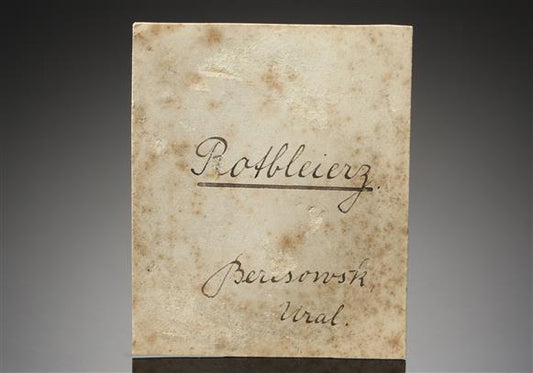 Rotbleierz.
Beresowsk,
Ural.